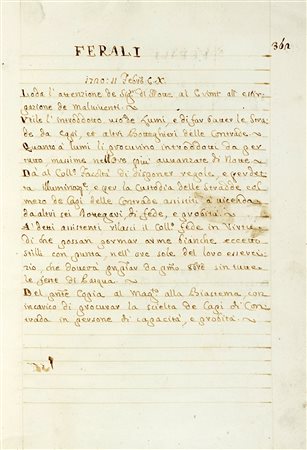 FERALI
362
1720: 11 Febr: C.X.
Loda l'attenzione de Sig:ri di Notte al Crim:l all' estir-
pazione de Malviventi.
Utile l'introdotto uso de lumi, e di far batter le Stra-
de da Capi, et altri Botteghieri delle Contrade.
Quanto a' lumi li procurino introdotti da per
tutto massime nell'ore più avvanzate di Notte
Dà al Coll:o facoltà di disponer regole, e per detta
illuminaz:e, e per la Custodia delle Stradde col
mezo de Capi delle Contrade assistiti a vicenda
da altri soi Bottegari di fede, e probità.
A detti assistenti rilasci il Coll:o fede in virtù
di che possan portar arme bianche eccetto
stilli con punta, nell'ore sole del loro eserci-
zio, che doverà principiar da
le feste di Pasqua.
Del pñte Copia al Mag:to alla Biastema, con
incarico di procurar la scielta de Capi di Con-
trada in persone di capacità, e probità.